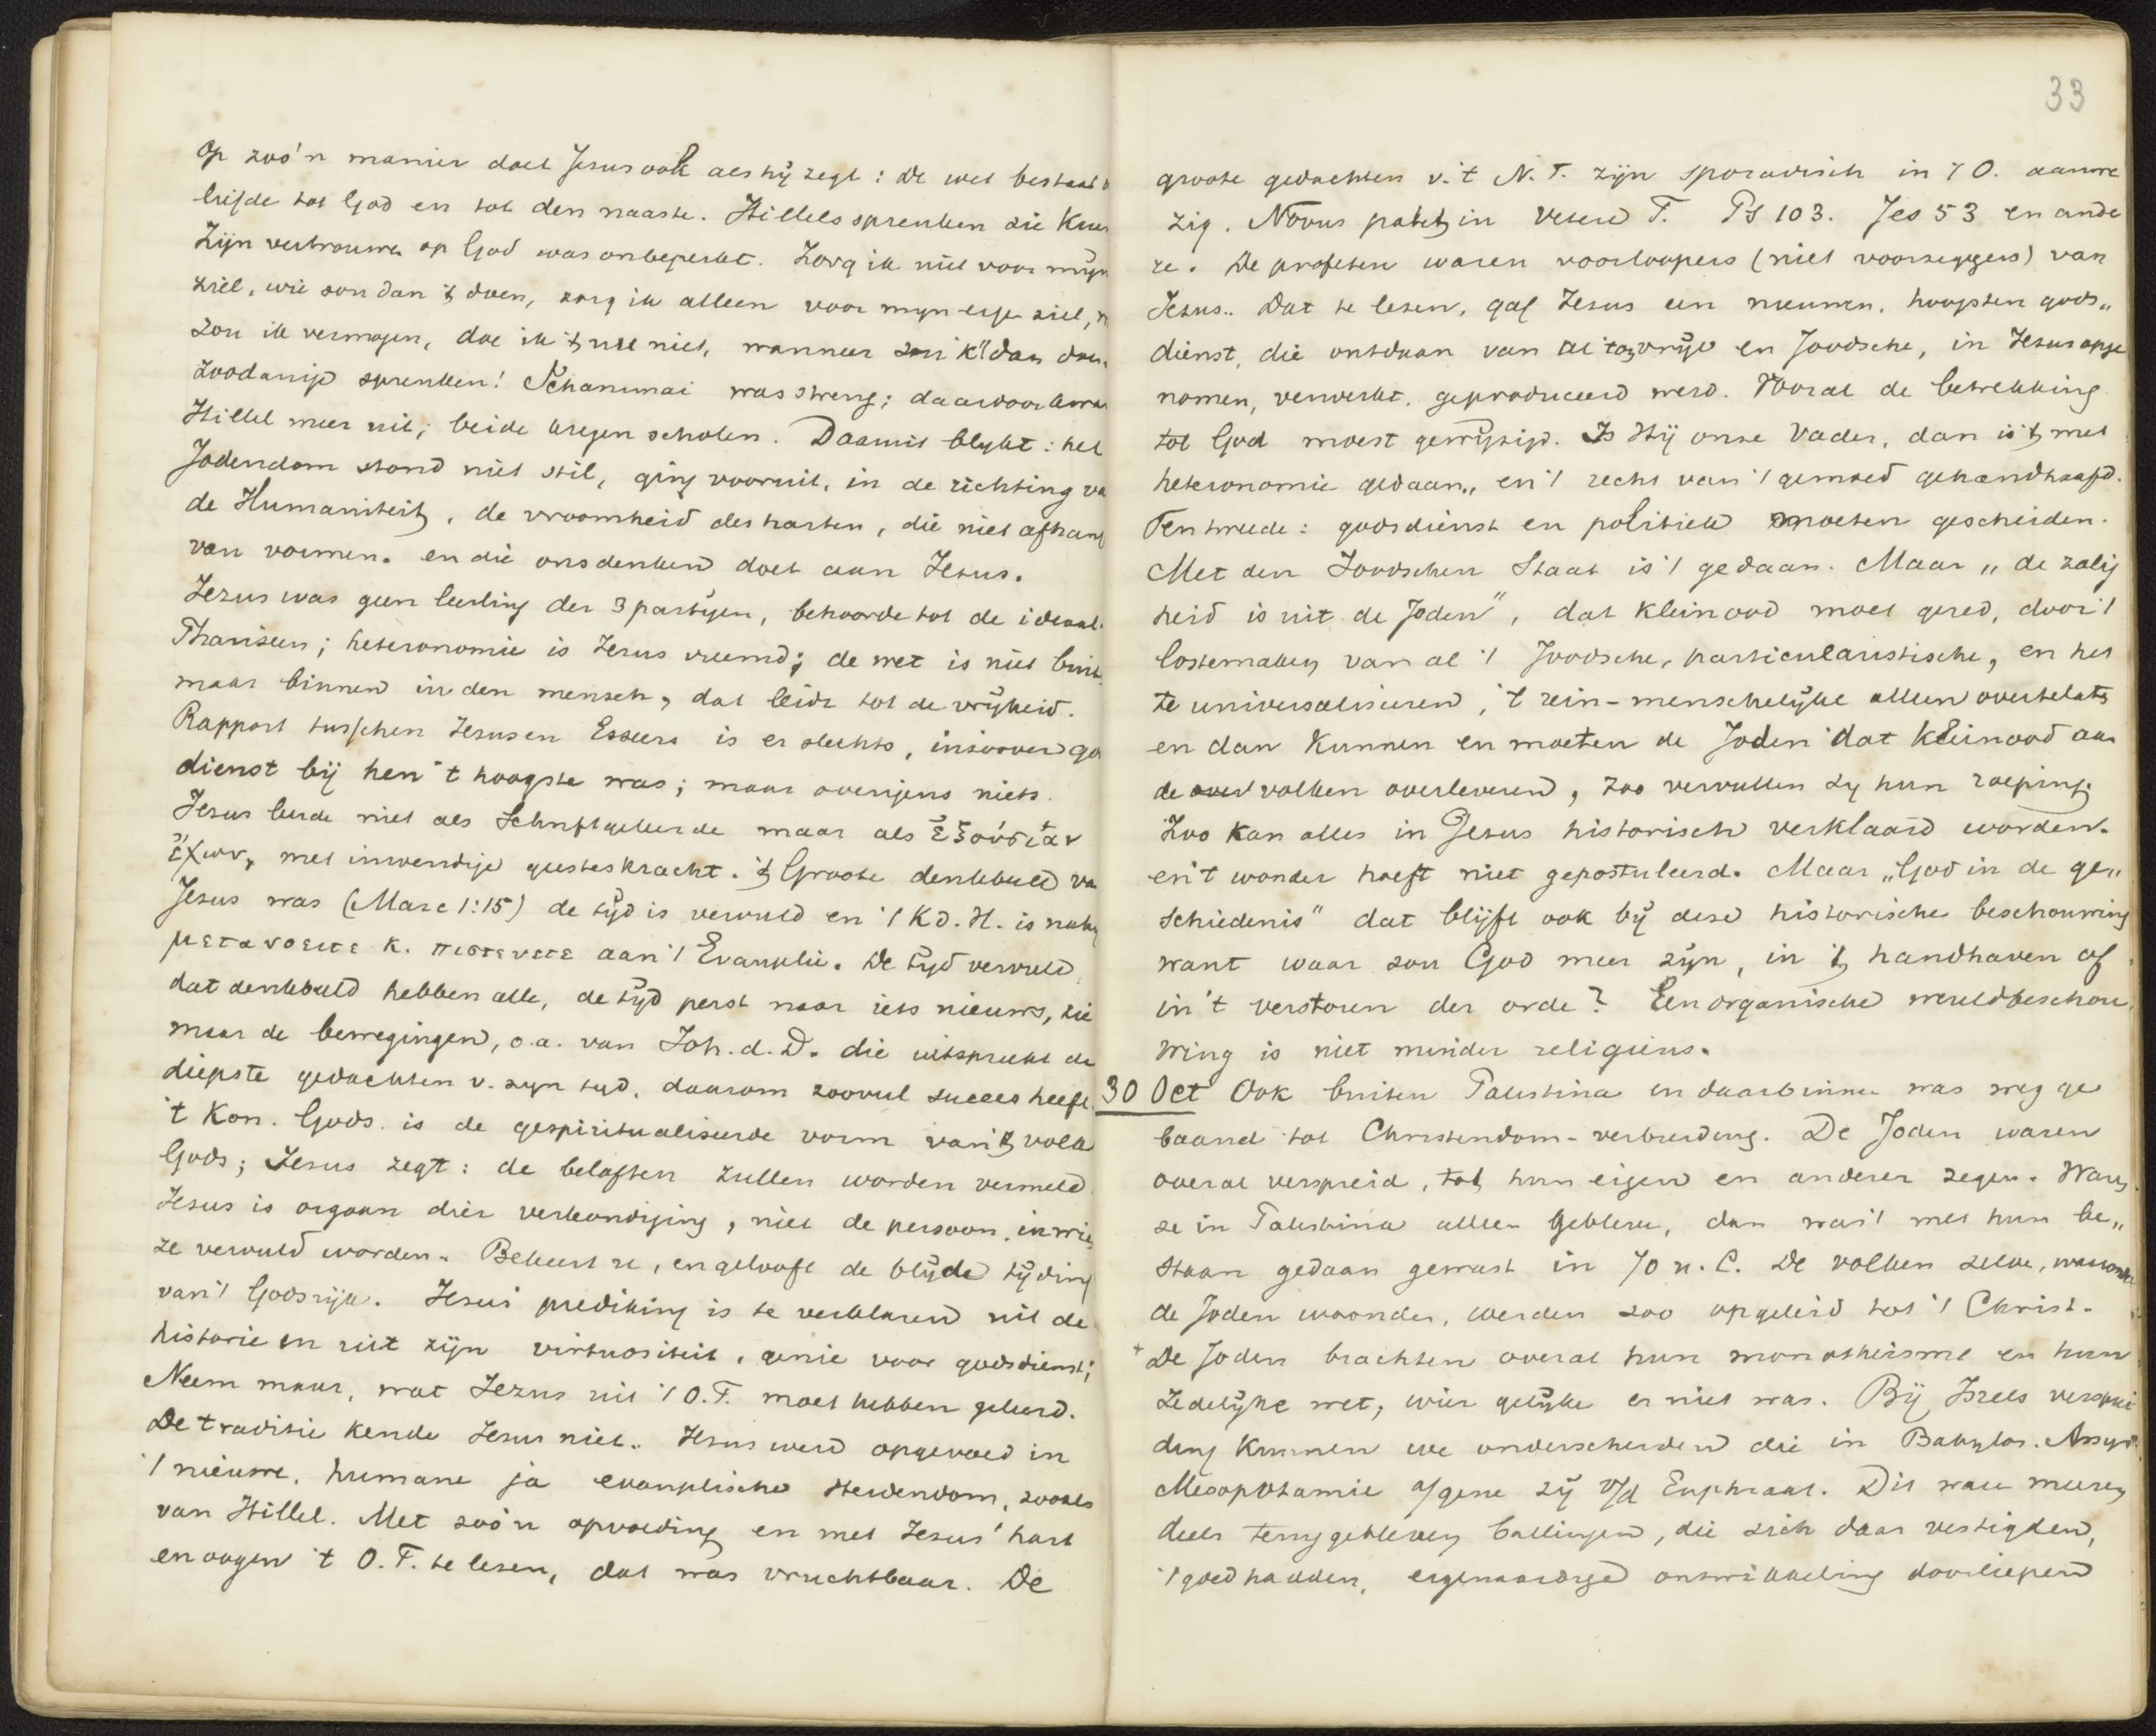 op zoo'n manier doet Jesus ook als hij zegt: de wet bestaat
liefde tot God en tot den naaste. Hillels spreuken zie
Zijn vertrouwen op God was onbeperkt. Zorg ik niet voor mijn
ziel, wie zou dan 't doen, zorg ik alleen voor myn eige ziel,
zou ik vermogen, doe ik 't nu niet, wanneer zou ik 't dan doen.
Zoodanige spreuken! Schammai was streng; daardoor kwam
Hillel meer uit; beide kregen scholen. Daaruit blykt: het
Jodendom stond niet stil, ging vooruit, in de richting va
de Humaniteit, de vroomheid des harten, die niet afhang
van vormen. en die ons denken doet aan Jezus.
Jezus was geen leerling der 3 partijen, behoorde tot de ideaal.
Phariseen; heteronomie is Jezus vreemd; de wet is niet buit.
maar binnen in den mensch, dat leidt tot de vrijheid.
Rapport tusschen Jezus en Esseers is er slechts, inzooverd go
dienst bij hen 't hoogste was; maar overigens niets.
Jezus leerde niet als Schriftgeleerde maar als ἐξουσίαν
ἔχων, met inwendige geesteskracht. 't Groote denkbeeld va
Jezus was (Marc 1:15) de tijd is vervuld en 't K.d.H. is naby
μετανοειτε κ. πιστευετε aan 't Evangelie. De tijd vervuld
dat denkbeeld hebben alle, de tijd perst naar iets nieuws, zie
maar de bewegingen, o.a. van Joh. d. D. die uitspreekt de
diepste gedachten v. zyn tyd. daarom zooveel succes heeft.
't Kon. Gods is de gespiritualiseerde vorm van 't volk
Gods; Jezus zegt: de beloften zullen worden vervuld
Jezus is orgaan dier verkondiging, niet de persoon, in wie
ze vervuld worden. Bekeert u, en gelooft de blijde tijding
van 't Godsrijk. Jezus' prediking is te verklaren uit de
historie en uit zijn virtuositeit, genie voor godsdienst;
Neem maar, wat Jezus uit 't O.T. moet hebben geleerd.
De traditie kende Jezus niet. Jezus werd opgevoed in
't nieuwe, humane ja evangelische Jodendom, zooals
van Hillel. Met zoo'n opvoeding en met Jezus' hart
en oogen 't O.T. te lezen, dat was vruchtbaar. De
33
groote gedachten v. 't N.T. zijn sporadisch in 't O. aanwe
zig. Novus patet in Vetere T. Ps 103. Jes 53 en ande
re. De profeten waren voorloopers (niet voorzeggers) van
Jezus. Dat te lezen, gaf Jezus een nieuwen, hoogsten gods„
dienst, die ontdaan van al 't onvrije en Joodsche, in Jezus opge
nomen, verwerkt, geproduceerd werd. Vooral de betrekking
tot God moest gewijzigd. Is Hij onze Vader, dan is 't met
heteronomie gedaan, en 't recht van 't gemoed gehandhaafd.
Ten tweede: godsdienst en politiek moeten gescheiden.
Met den Joodschen Staat is 't gedaan. Maar „de zalig
heid is uit de Joden", dat kleinood moet gered, door 't
losmaken van al 't Joodsche, particularistische, en het
te universaliseeren, 't rein-menschelijke alleen overtelaten
en dan kunnen en moeten de Joden dat kleinood aan
de volken overleveren, zoo vervullen zy hun roeping.
Zoo kan alles in Jesus historisch verklaard worden.
en 't wonder hoeft niet gepostuleerd. Maar „God in de ge„
schiedenis" dat blijft ook bij deze historische beschouwing
want waar zou God meer zijn, in 't handhaven of
in 't verstoren der orde? Een organische wereldbeschou„
wing is niet minder religieus.
30 Oct Ook buiten Palestina en daarbinnen was weg ge
baand tot Christendom-verbreiding. De Joden waren
overal verspreid, tot hun eigen en anderer zegen. Waren
ze in Palestina alleen gebleven, dan was 't met hun be„
staan gedaan geweest in 70 n. C. De volken zelve, waaronder
de Joden woonden, werden zoo opgeleid tot 't Christ.
+ De Joden brachten overal hun monotheisme en hun
zedelijke wet, wier gelijke er niet was. Bij Israels versprei
ding kunnen we onderscheiden die in Babylon. Assyr.
Mesopotamie a/gene zij v/d Euphraat. Dit waren meeren
deels teruggebleven ballingen, die zich daar vestigden,
't goed hadden, eigenaardige ontwikkeling doorliepen